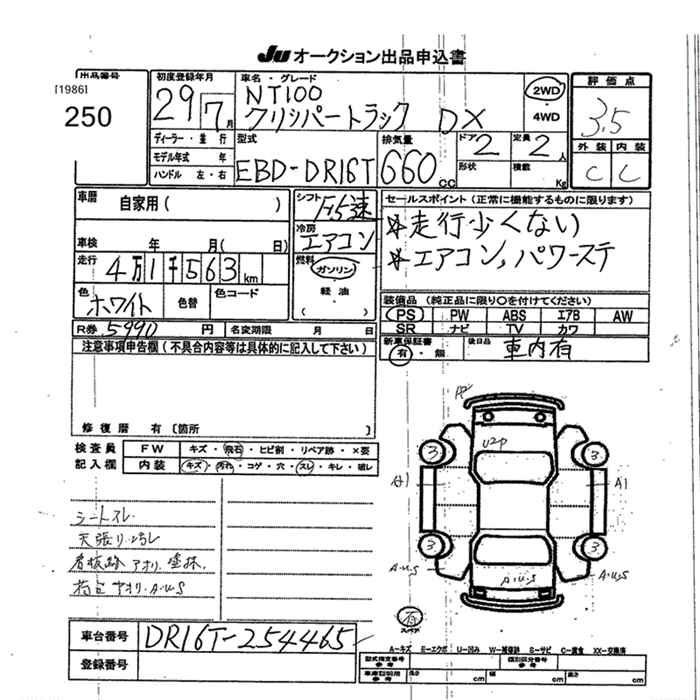 JU オークション出品申込書
出品番号
[1986]
250
初度登録年月
29年7月
車名・グレード
NT100
クリッパートラック DX
2WD
・
4WD
評価点
3.5
外装 内装
C C
ディーラー・並行
モデル年式 年
ハンドル 左・右
型式
EBD-DR16T
排気量
660cc
ドア 2
定員 2人
形状
積載 Kg
車歴
自家用( )
シフト F5速
冷房
エアコン
燃料
ガソリン
・
軽油
・
( )
セールスポイント(正常に機能するものに限ります)
*走行少くない
*エアコン,パワーステ
車検 年 月( 日)
走行
4万1千563km
色
ホワイト
色替
色コード
R券 5990円
名変期限 月 日
装備品(純正品に限り○を付けてください)
PS PW ABS エアB AW
SR ナビ TV カワ
新車保証書
有・無
後日品 車内有
注意事項申告欄(不具合内容等は具体的に記入して下さい)
修復歴 有〔箇所 〕
検査員
記入欄
FW キズ・飛石・ヒビ割・リペア跡・×要
内装 キズ・汚れ・コゲ・穴・スレ・キレ・破レ
シートスレ
天張り汚レ
看板跡 アオリ塗抹.
荷台 アオリ.A.U.S
A2
U2P
3 3
A1 A1
3 3
A.U.S A.U.S A.U.S
有
スペア
車台番号 DR16T-254465
登録番号
A-キズ E-エクボ U-凹み W-補修跡 S-サビ C-腐食 XX-交換済
型式指定番号
参考
類別区分番号
参考
車庫証明用
参考
長さ cm 幅 cm 高さ cm